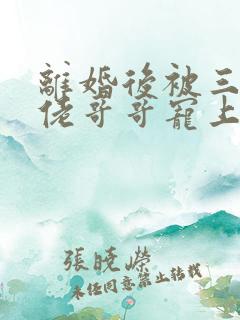 離婚後被三
佬哥哥寵上
張曉榮
未經同意禁止轉載